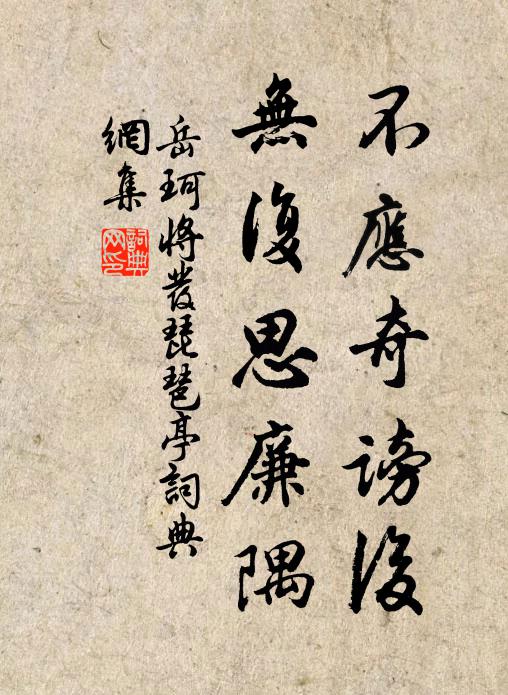 不應奇謗後
無復思廉隅
岳珂將發琵琶亭詞典
網集
詞典
网印